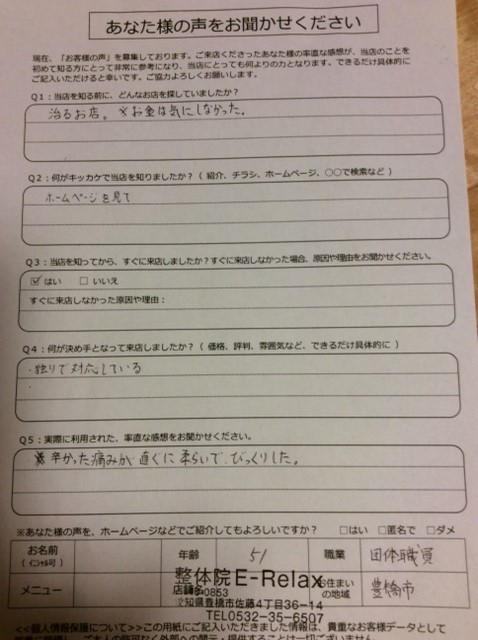 あなた様の声をお聞かせください
現在、「お客様の声」を募集しております。ご来店くださったあなた様の率直な感想が、当店のことを
初めて知る方にとって非常に参考になり、当店にとっても何よりの力となります。できるだけ具体的に
ご記入いただけると幸いです。ご協力よろしくお願いします。
Q1：当店を知る前に、どんなお店を探していましたか？
治るお店。※お金は気にしなかった。
Q2：何がキッカケで当店を知りましたか？（ 紹介、チラシ、ホームページ、○○で検索など ）
ホームページを見て
Q3：当店を知ってから、すぐに来店しましたか？すぐに来店しなかった場合、原因や理由をお聞かせください。
☑ はい □ いいえ
すぐに来店しなかった原因や理由：
Q4：何が決め手となって来店しましたか？（ 価格、評判、雰囲気など、できるだけ具体的に ）
・独りで対応している
・
Q5：実際に利用された、率直な感想をお聞かせください。
辛かった痛みが直ぐに柔らいで、びっくりした。
※あなた様の声を、ホームページなどでご紹介してもよろしいですか？ □はい □匿名で □ダメ
お名前 年齢 51 職業 団体職員
（イニシャル可）
メニュー 店舗 お住まいの地域 豊橋市
整体院E-Relax
0853
知県豊橋市佐藤4丁目36-14
TEL0532-35-6507
<<個人情報保護について>>この用紙にご記入いただきました情報は、貴重なお客様データとし